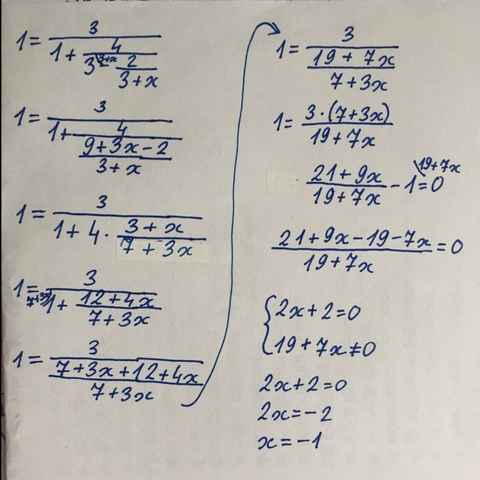 1 = 3 / (1 + 4 / (3^{3+x} - 2 / (3 + x)))
1 = 3 / (1 + 4 / ((9 + 3x - 2) / (3 + x)))
1 = 3 / (1 + 4 · (3 + x) / (7 + 3x))
1 = 3 / (^{7+3x}1 + (12 + 4x) / (7 + 3x))
1 = 3 / ((7 + 3x + 12 + 4x) / (7 + 3x))
1 = 3 / ((19 + 7x) / (7 + 3x))
1 = 3 · (7 + 3x) / (19 + 7x)
(21 + 9x) / (19 + 7x) - 1^{19+7x} = 0
(21 + 9x - 19 - 7x) / (19 + 7x) = 0
{ 2x + 2 = 0
19 + 7x ≠ 0
2x + 2 = 0
2x = -2
x = -1